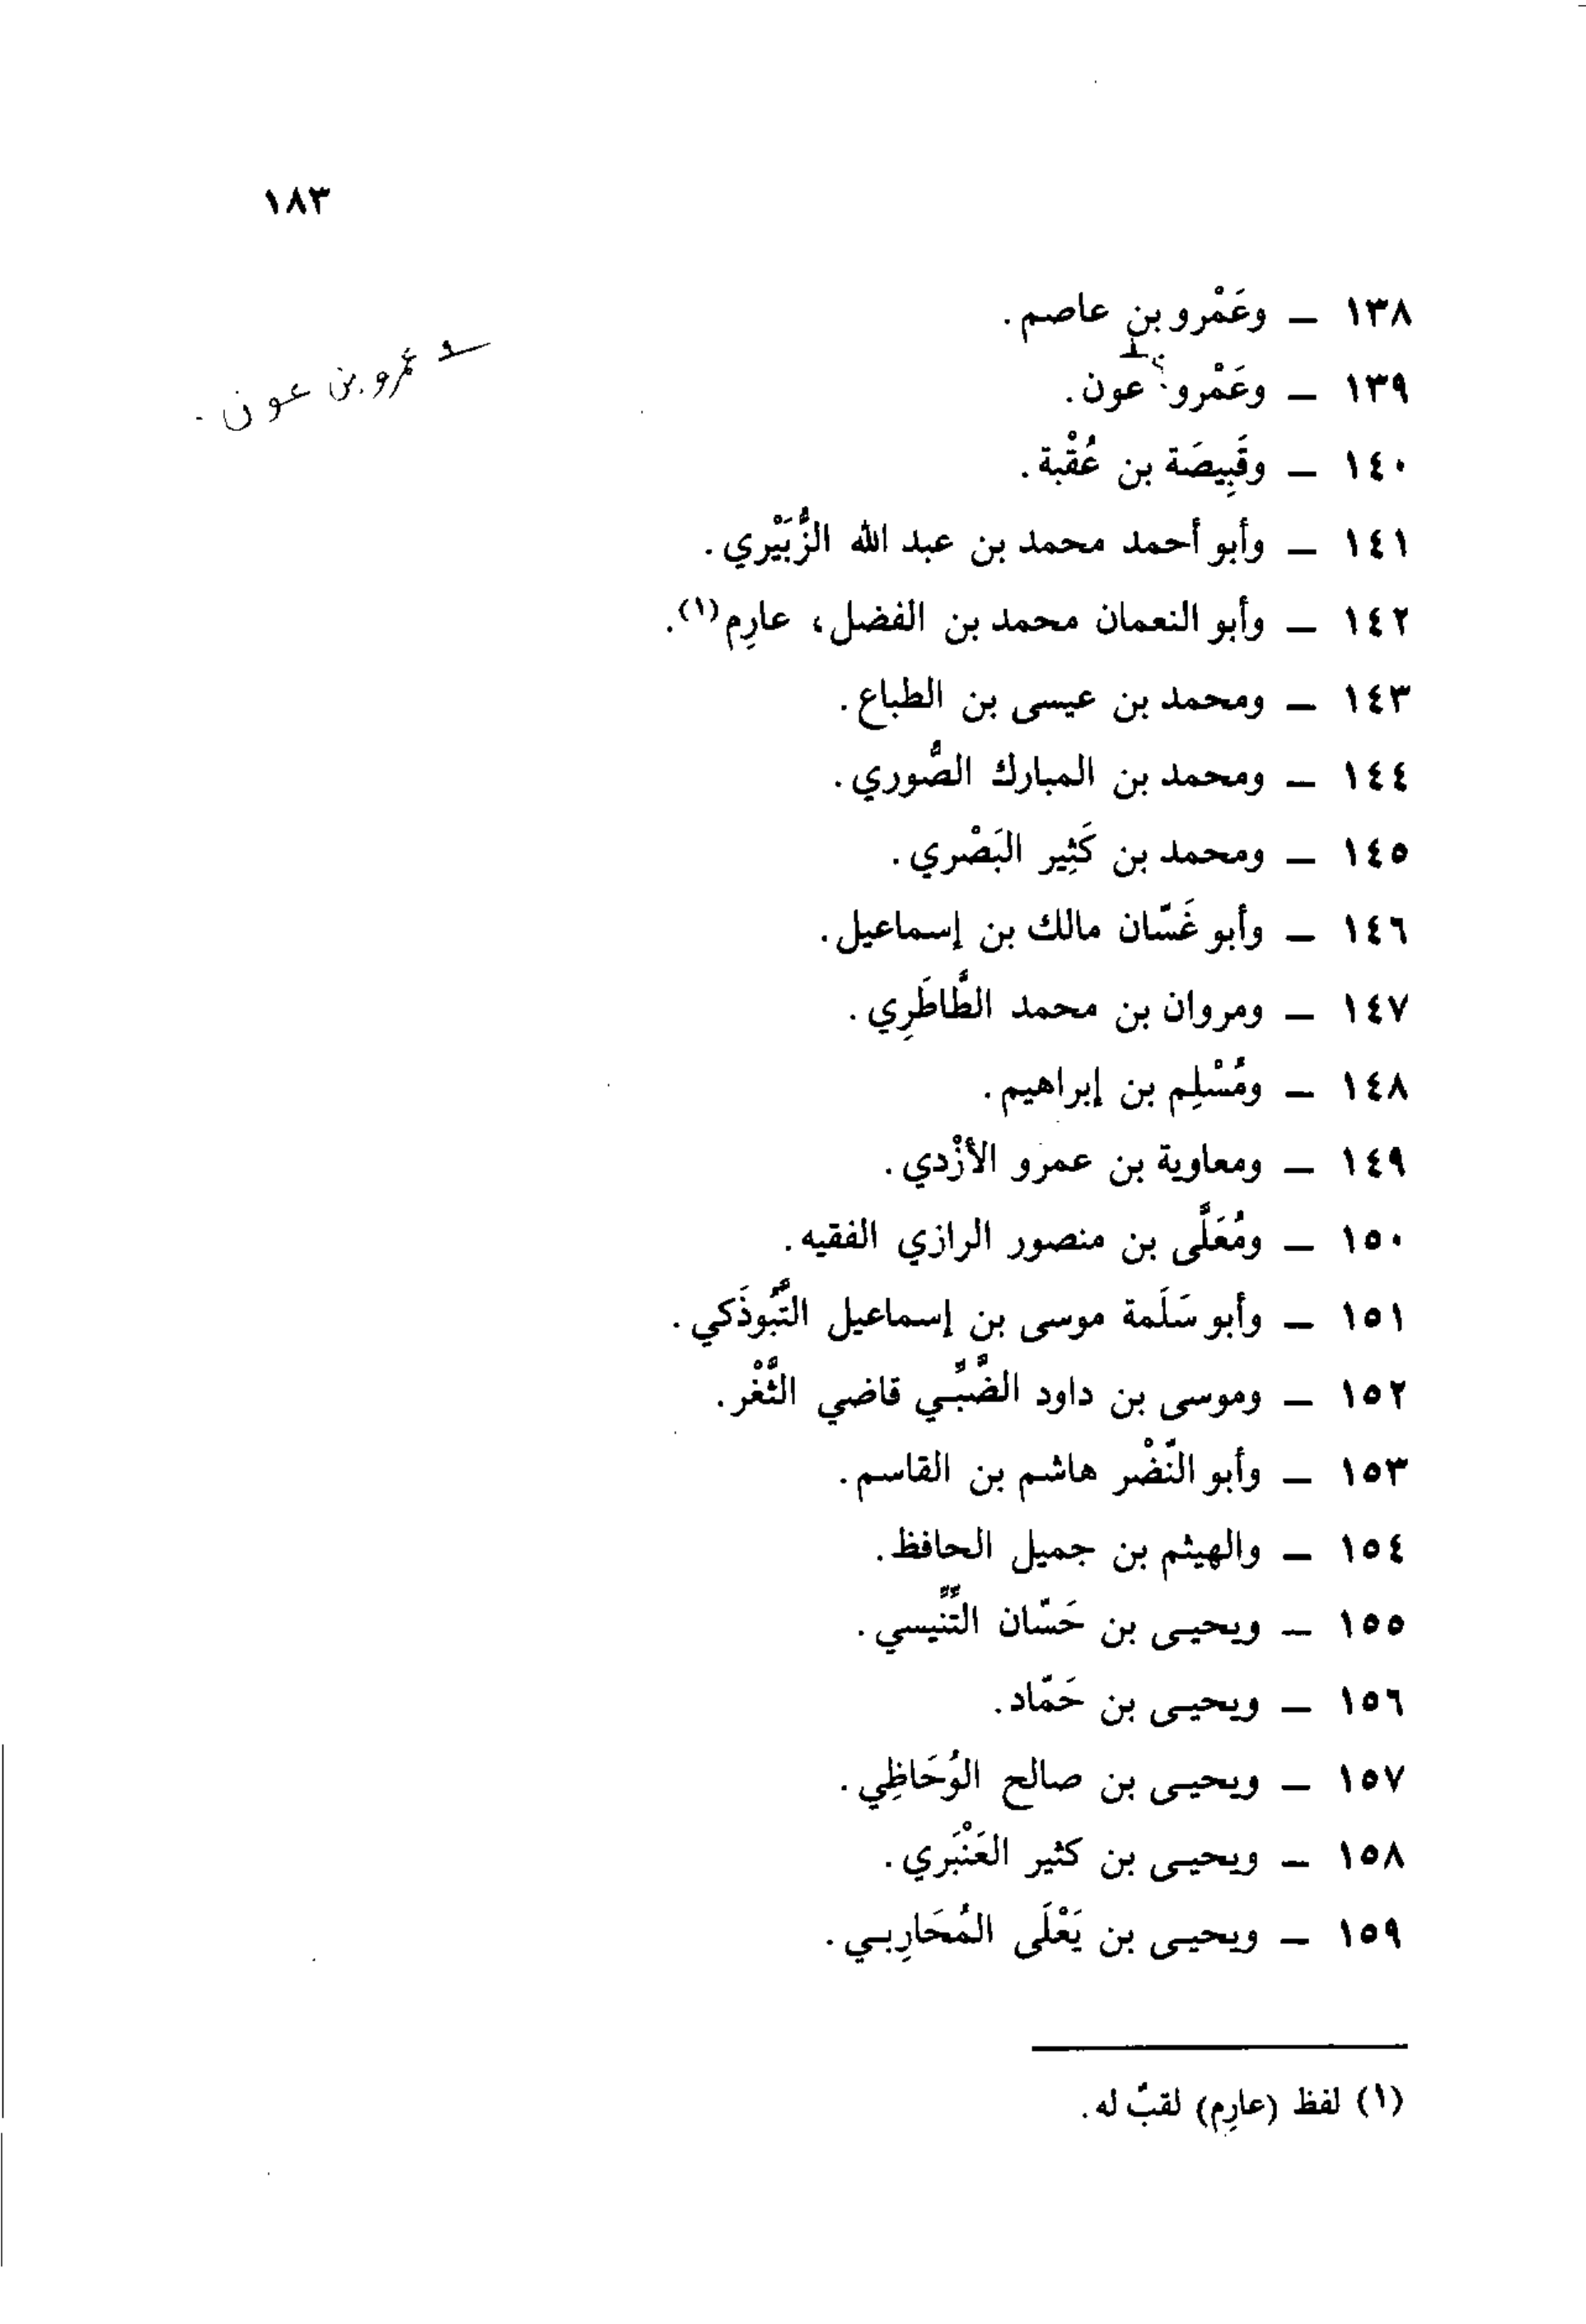 ١٨٣
١٣٨ – وعَمْرو بن عاصم.
عمرو بن عون.
١٣٩ – وعَمْرو عون.
١٤٠ – وقَبِيصَة بن عُقْبة.
١٤١ – وأبو أحمد محمد بن عبد الله الزُّبَيْري.
١٤٢ – وأبو النعمان محمد بن الفضل، عارِم(١).
١٤٣ – ومحمد بن عيسى بن الطباع.
١٤٤ – ومحمد بن المبارك الصُّوري.
١٤٥ – ومحمد بن كَثِير البَصْري.
١٤٦ – وأبو غَسّان مالك بن إسماعيل.
١٤٧ – ومروان بن محمد الطَّاطَرِي.
١٤٨ – ومُسْلِم بن إبراهيم.
١٤٩ – ومعاوية بن عمرو الأزْدي.
١٥٠ – ومُعَلَّى بن منصور الرازي الفقيه.
١٥١ – وأبو سَلَمة موسى بن إسماعيل التَّبُوذَكي.
١٥٢ – وموسى بن داود الضَّبِّي قاضي الثَّغْر.
١٥٣ – وأبو النّضْر هاشم بن القاسم.
١٥٤ – والهيثم بن جميل الحافظ.
١٥٥ – ويحيى بن حَسّان التِّنِّيسي.
١٥٦ – ويحيى بن حَمّاد.
١٥٧ – ويحيى بن صالح الوُحَاظِي.
١٥٨ – ويحيى بن كثير العَنْبَري.
١٥٩ – ويحيى بن يَعْلَى المُحَارِبي.
(١) لفظ (عارِم) لقبٌ له.